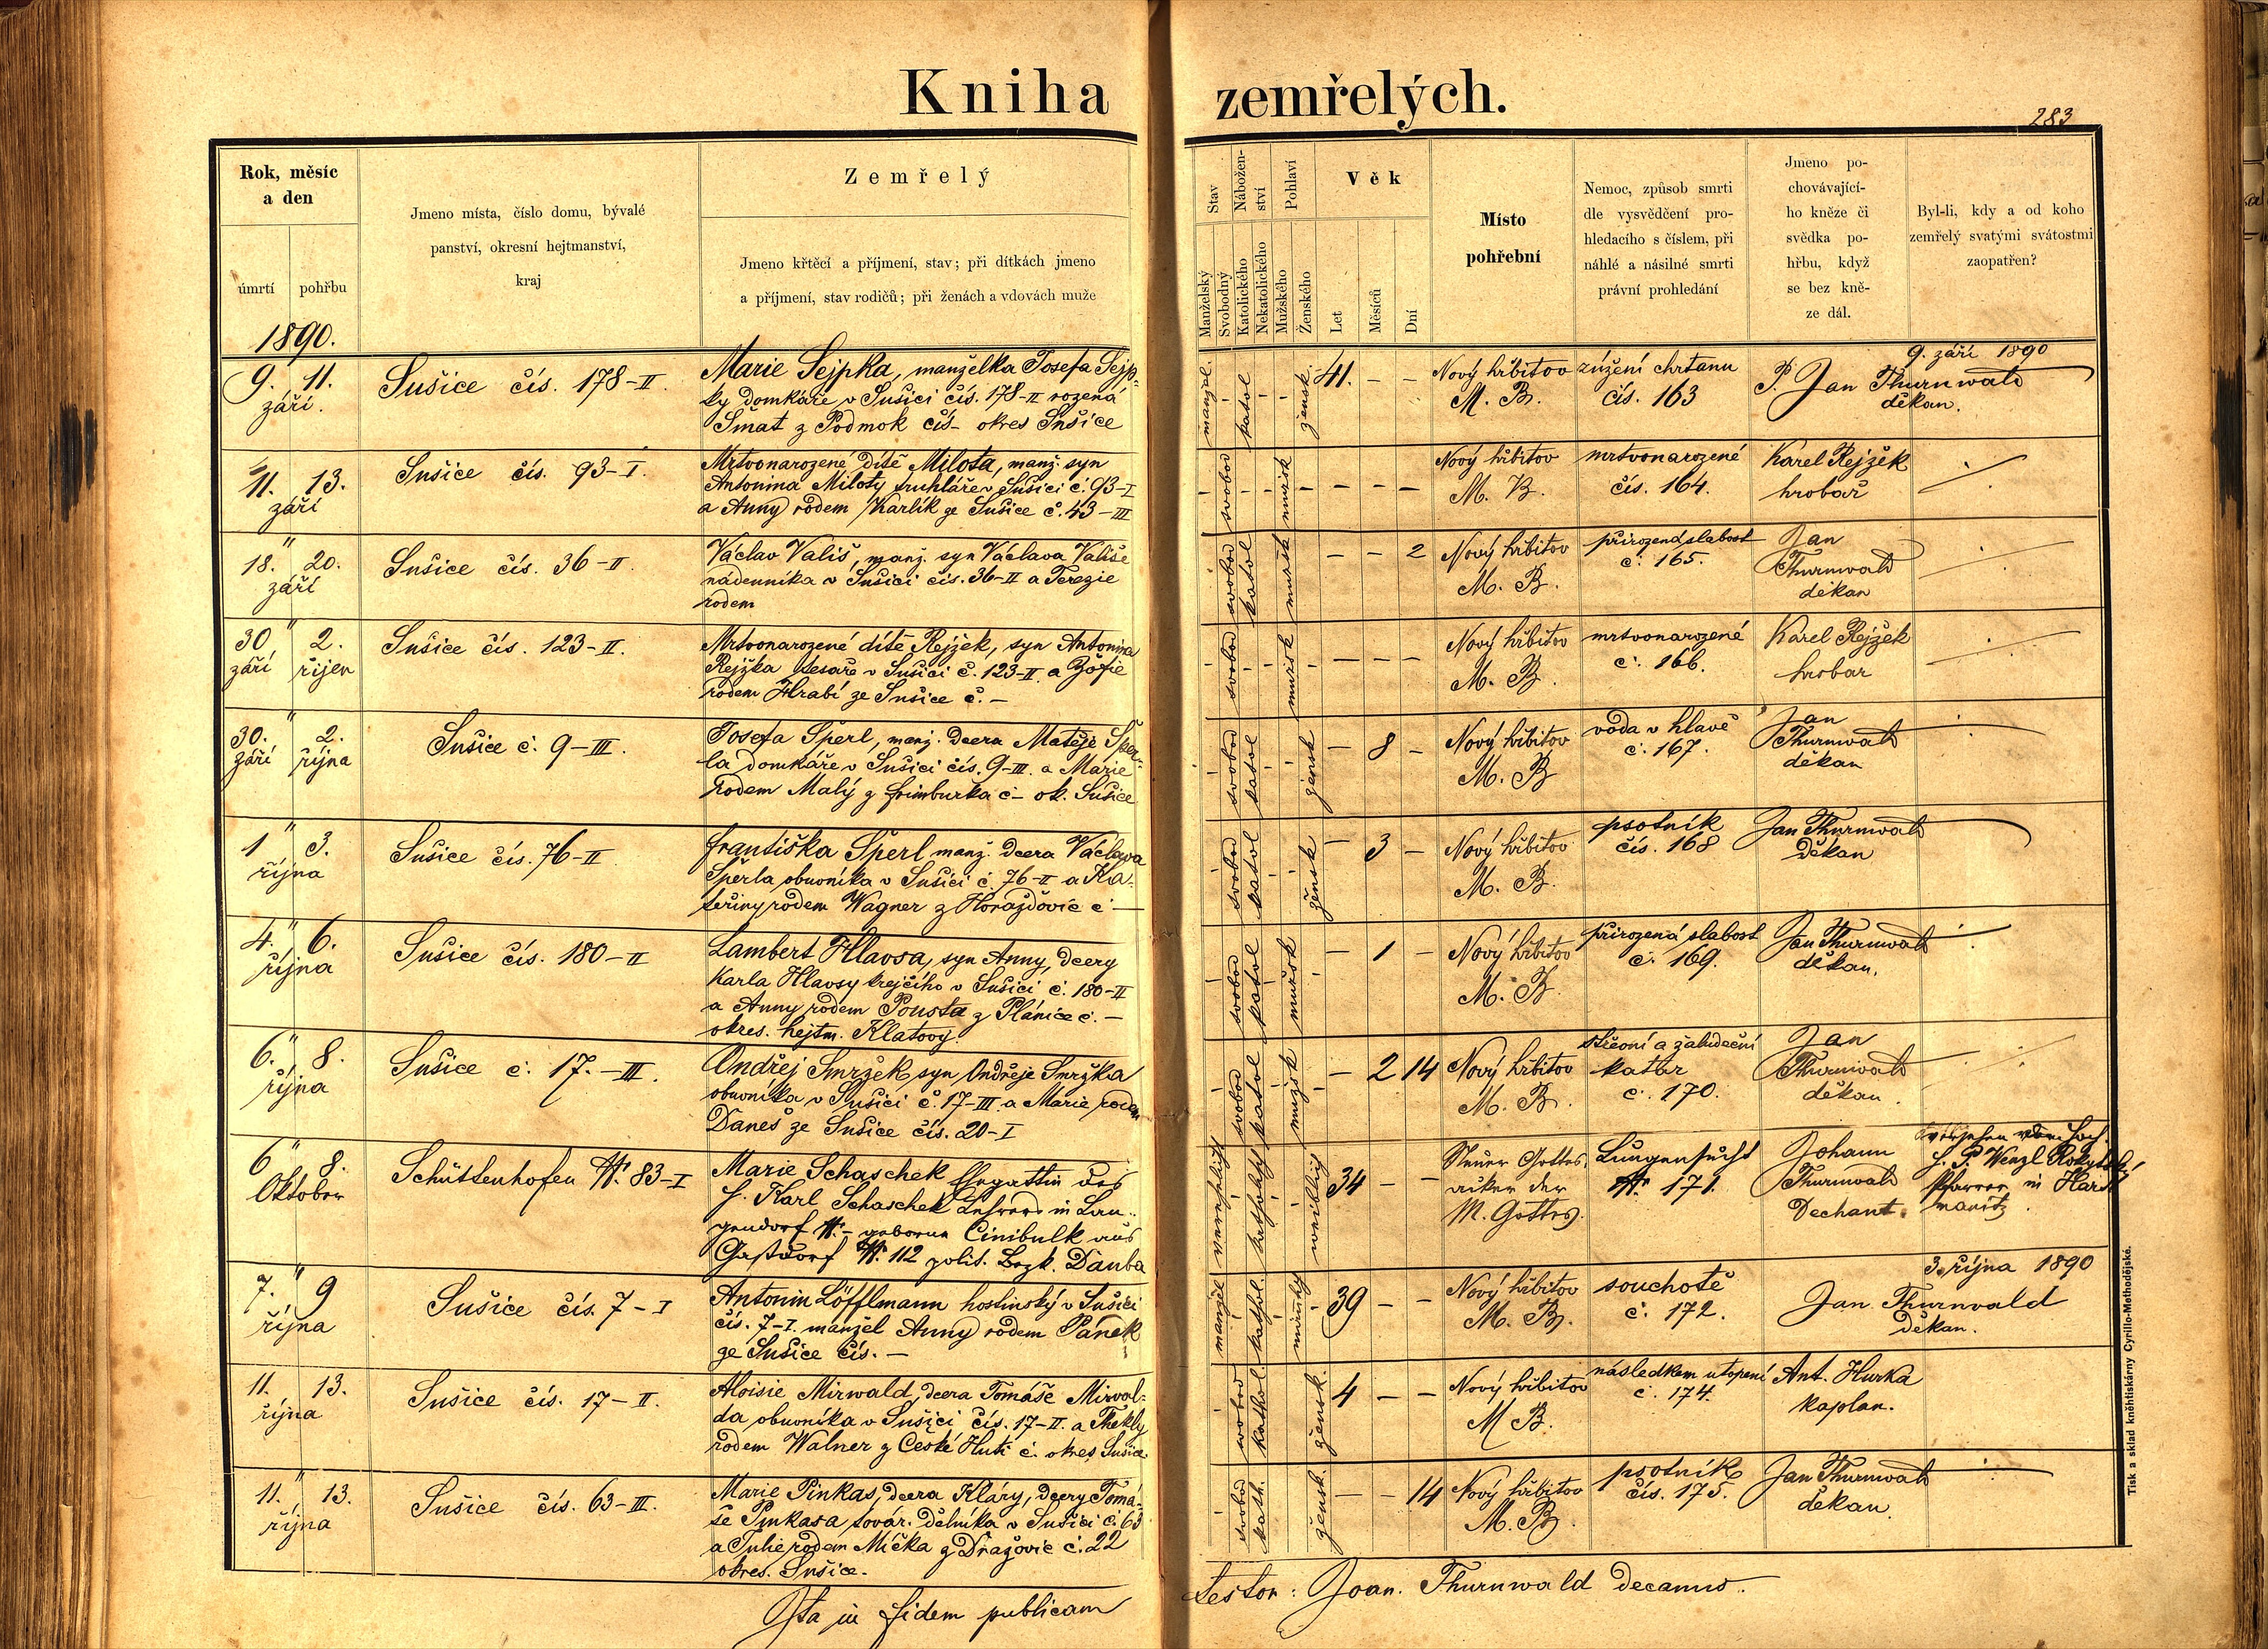 Kniha zemřelých.
283
Rok, měsíc
a den
úmrtí
pohřbu
Jmeno místa, číslo domu, bývalé
panství, okresní hejtmanství,
kraj
Zemřelý
Jmeno křtěcí a příjmení, stav; při dítkách jmeno
a příjmení, stav rodičů; při ženách a vdovách muže
Stav
Manželský
Svobodný
Nábožen-
ství
Katolického
Nekatolického
Pohlaví
Mužského
Ženského
Věk
Let
Měsíců
Dní
Místo
pohřební
Nemoc, způsob smrti
dle vysvědčení pro-
hledacího s číslem, při
náhlé a násilné smrti
právní prohledání
Jmeno po-
chovávající-
ho kněze či
svědka po-
hřbu, když
se bez kně-
ze dál.
Byl-li, kdy a od koho
zemřelý svatými svátostmi
zaopatřen?
1890.
9. 11.
září.
Sušice čís. 178-II.
Marie Sejpka, manželka Josefa Sejp-
ky domkáře v Sušici čís. 178-II rozená
Šmat z Podmok čís- okres Sušice
manžel.
katol
žensk.
41. - -
Nový hřbitov
M. B.
zúžení chrtanu
čís. 163
P. Jan Thurnwald
děkan.
9. září 1890
11. 13.
září
Sušice čís. 93-I.
Mrtvonarozené dítě Milota, manž. syn
Antonína Miloty truhláře v Sušici č. 93-I
a Anny rodem Karlík ze Sušice č. 43-III
svobod
mužsk
- - -
Nový hřbitov
M. B.
mrtvonarozené
čís. 164.
Karel Rejžek
hrobař
18. " 20.
září
Sušice čís. 36-II.
Václav Vališ, manž. syn Václava Vališe
nádenníka v Sušici čís. 36-II a Terezie
rodem
svobod
katol
mužsk
- - 2
Nový hřbitov
M. B.
přirozená slabost
č. 165.
Jan
Thurnwald
děkan
30 " 2.
září říjen
Sušice čís. 123-II.
Mrtvonarozené dítě Rejžek, syn Antonína
Rejžka tesaře v Sušici č. 123-II. a Žofie
rodem Hrabí ze Sušice č. -
svobod
mužsk
- - -
Nový hřbitov
M. B.
mrtvonarozené
č. 166.
Karel Rejžek
hrobař
30. " 2.
září října
Sušice č. 9-III.
Josefa Šperl, manž. dcera Matěje Šper-
la domkáře v Sušici čís. 9-III. a Marie
rodem Malý z Frimburka č- ok. Sušice
svobod
katol
žensk
- 8 -
Nový hřbitov
M. B
voda v hlavě
č. 167.
Jan
Thurnwald
děkan
1 " 3.
října
Sušice čís. 76-II
Františka Šperl manž. dcera Václava
Šperla obuvníka v Sušici č. 76-II a Ka-
teřiny rodem Wagner z Horažďovic č -
svobod
katol
žensk
- 3 -
Nový hřbitov
M. B.
psotník
čís. 168
Jan Thurnwald
děkan
4. " 6.
října
Sušice čís. 180-II
Lambert Hlavsa, syn Anny, dcery
Karla Hlavsy krejčího v Sušici č. 180-II
a Anny rodem Pousta z Plánice č. -
okres. hejtm. Klatovy.
svobod
katol
mužsk
- 1 -
Nový hřbitov
M. B.
přirozená slabost
č. 169.
Jan Thurnwald
děkan.
6. " 8.
října
Sušice č. 17.-III.
Ondřej Smržek syn Ondřeje Smržka
obuvníka v Sušici č. 17-III a Marie rodem
Daneš ze Sušice čís. 20-I
svobod
katol
mužsk
- 2 14
Nový hřbitov
M. B.
střevní a žaludeční
katar
č. 170.
Jan
Thurnwald
děkan.
6 " 8.
Oktober
Schüttenhofen N. 83-I
Marie Schaschek Ehegattin des
H. Karl Schaschek Lehrers in Lan-
gendorf N. - geborne Cinibulk aus
Gastdorf N. 112 polit. Bezk. Dauba
verehelicht
katholisch
weiblich
34 - -
Neuer Gottes-
acker der
M. Gottes.
Lungensucht
N. 171.
Johann
Thurnwald
Dechant.
versehen vom hoch.
H. P. Wenzl Rokytský
Pfarrer in Hart-
manitz.
7. " 9
října
Sušice čís. 7-I
Antonín Löfflmann hostinský v Sušici
čís. 7-I. manžel Anny rodem Pánek
ze Sušice čís. -
manžel
kathol.
mužský
39 - -
Nový hřbitov
M. B.
souchotě
č. 172.
Jan Thurnvald
děkan.
3. října 1890
11. " 13.
října
Sušice čís. 17-II.
Aloisie Mirwald, dcera Tomáše Mirval-
da obuvníka v Sušici čís. 17-II. a Thekly
rodem Walner z České Huti č. okres Sušice.
svobod
kathol.
žensk.
4 - -
Nový hřbitov
M B.
následkem utopení
č. 174.
Ant. Hurka
kaplan.
11. " 13.
října
Sušice čís. 63-III.
Marie Pinkas, dcera Kláry, dcery Tomá-
še Pinkasa továr. dělníka v Sušici č. 63
a Julie rodem Míčka z Dražovic č. 22
okres. Sušice.
svobod
kath.
žensk.
- - 14
Nový hřbitov
M. B.
psotník
čís. 175.
Jan Thurnwald
děkan.
Ita in fidem publicam
testor: Joan. Thurnwald decanus.
Tisk a sklad kněhtiskárny Cyrillo-Methodějské.